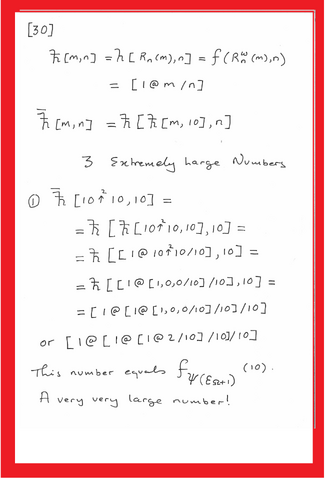 [30]
ħ[m,n] = h[Rₙ(m),n] = f(Rₙ^ω(m),n)
= [1@m/n]
ħ̄[m,n] = ħ[ħ[m,10],n]
3 Extremely Large Numbers
① ħ̄[10↑²10,10] =
= ħ[ħ[10↑²10,10],10] =
= ħ[[1@10↑²10/10],10] =
= ħ[[1@[1,0,0/10]/10],10] =
= [1@[1@[1,0,0/10]/10]/10]
or [1@[1@[1@2/10]/10]/10]
This number equals f_ψ(ε_Ω+1) (10).
A very very large number!